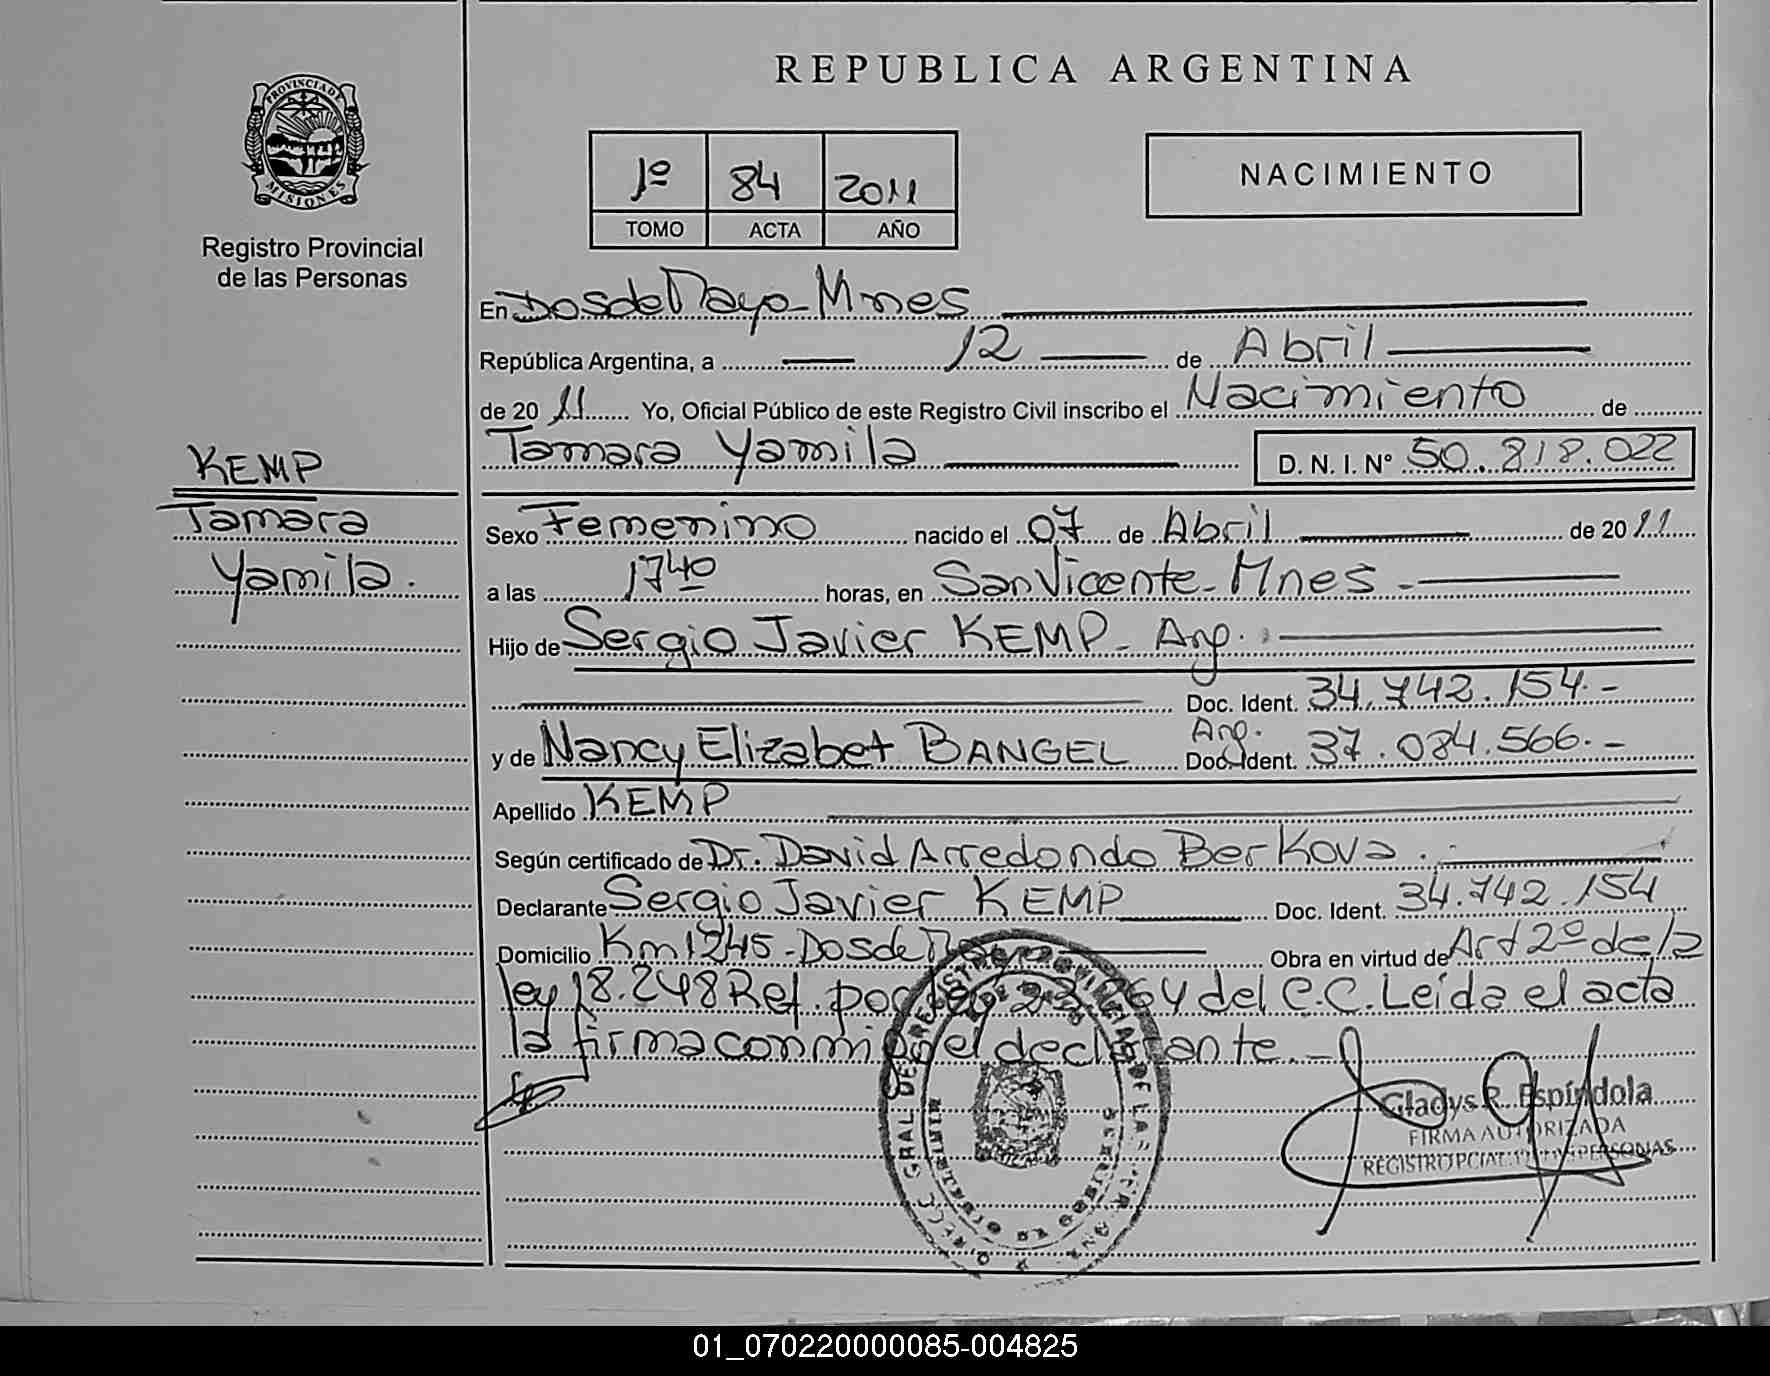 PROVINCIA DE
MISIONES
Registro Provincial
de las Personas
KEMP
Tamara
Yamila.
REPUBLICA ARGENTINA
1º 84 2011
TOMO ACTA AÑO
NACIMIENTO
En Dos de Mayo - Mnes
República Argentina, a 12 de Abril
de 2011 Yo, Oficial Público de este Registro Civil inscribo el Nacimiento de
Tamara Yamila D. N. I. Nº 50.818.022
Sexo Femenino nacido el 07 de Abril de 2011
a las 17 40 horas, en San Vicente - Mnes -
Hijo de Sergio Javier KEMP - Arg.
Doc. Ident. 34.742.154.-
Arg.
y de Nancy Elizabet BANGEL Doc. Ident. 37.084.566.-
Apellido KEMP
Según certificado de Dr. David Arredondo Berkova.
Declarante Sergio Javier KEMP Doc. Ident. 34.742.154
Domicilio Km 1245 - Dos de Mayo Obra en virtud de Art 2º de la
ley 18.248 Ref. por del C.C. Leída el acta
la firma conmigo el declarante.-
Gladys R. Espíndola
FIRMA AUTORIZADA
REGISTRO PCIAL. PERSONAS
01_070220000085-004825